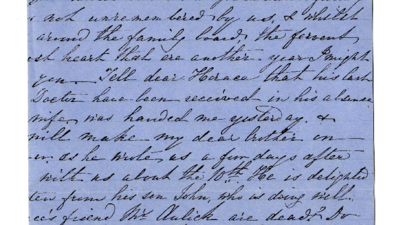 not unremembered by us, & whilst
around the family board, the fervent
est heart that are another year I might
you. Tell dear Horace that his last
Doctor have been received in his absence
wife, was handed me yesterday. &
will make my dear brother on
as he wrote us a few days after
with us about the 10th. He is delighted
from his son John, who is doing well.
friend Mr Aulick are dead? Do